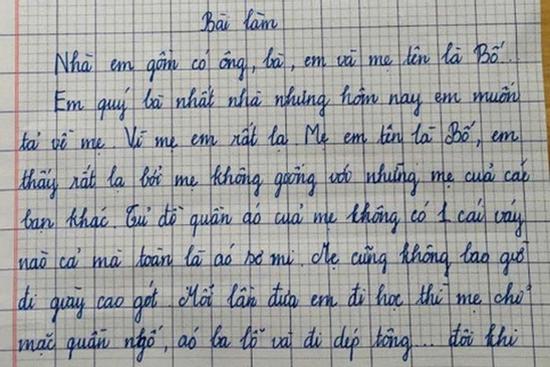 Bài làm
Nhà em gồm có ông, bà, em và mẹ tên là Bố.
Em quý bà nhất nhà nhưng hôm nay em muốn
tả về mẹ. Vì mẹ em rất lạ. Mẹ em tên là Bố, em
thấy rất lạ bởi mẹ không giống với những mẹ của các
bạn khác. Tủ đồ quần áo của mẹ không có 1 cái váy
nào cả mà toàn là áo sơ mi. Mẹ cũng không bao giờ
đi giày cao gót. Mỗi lần đưa em đi học thì mẹ chỉ
mặc quần ngố, áo ba lỗ và đi dép tông... đôi khi